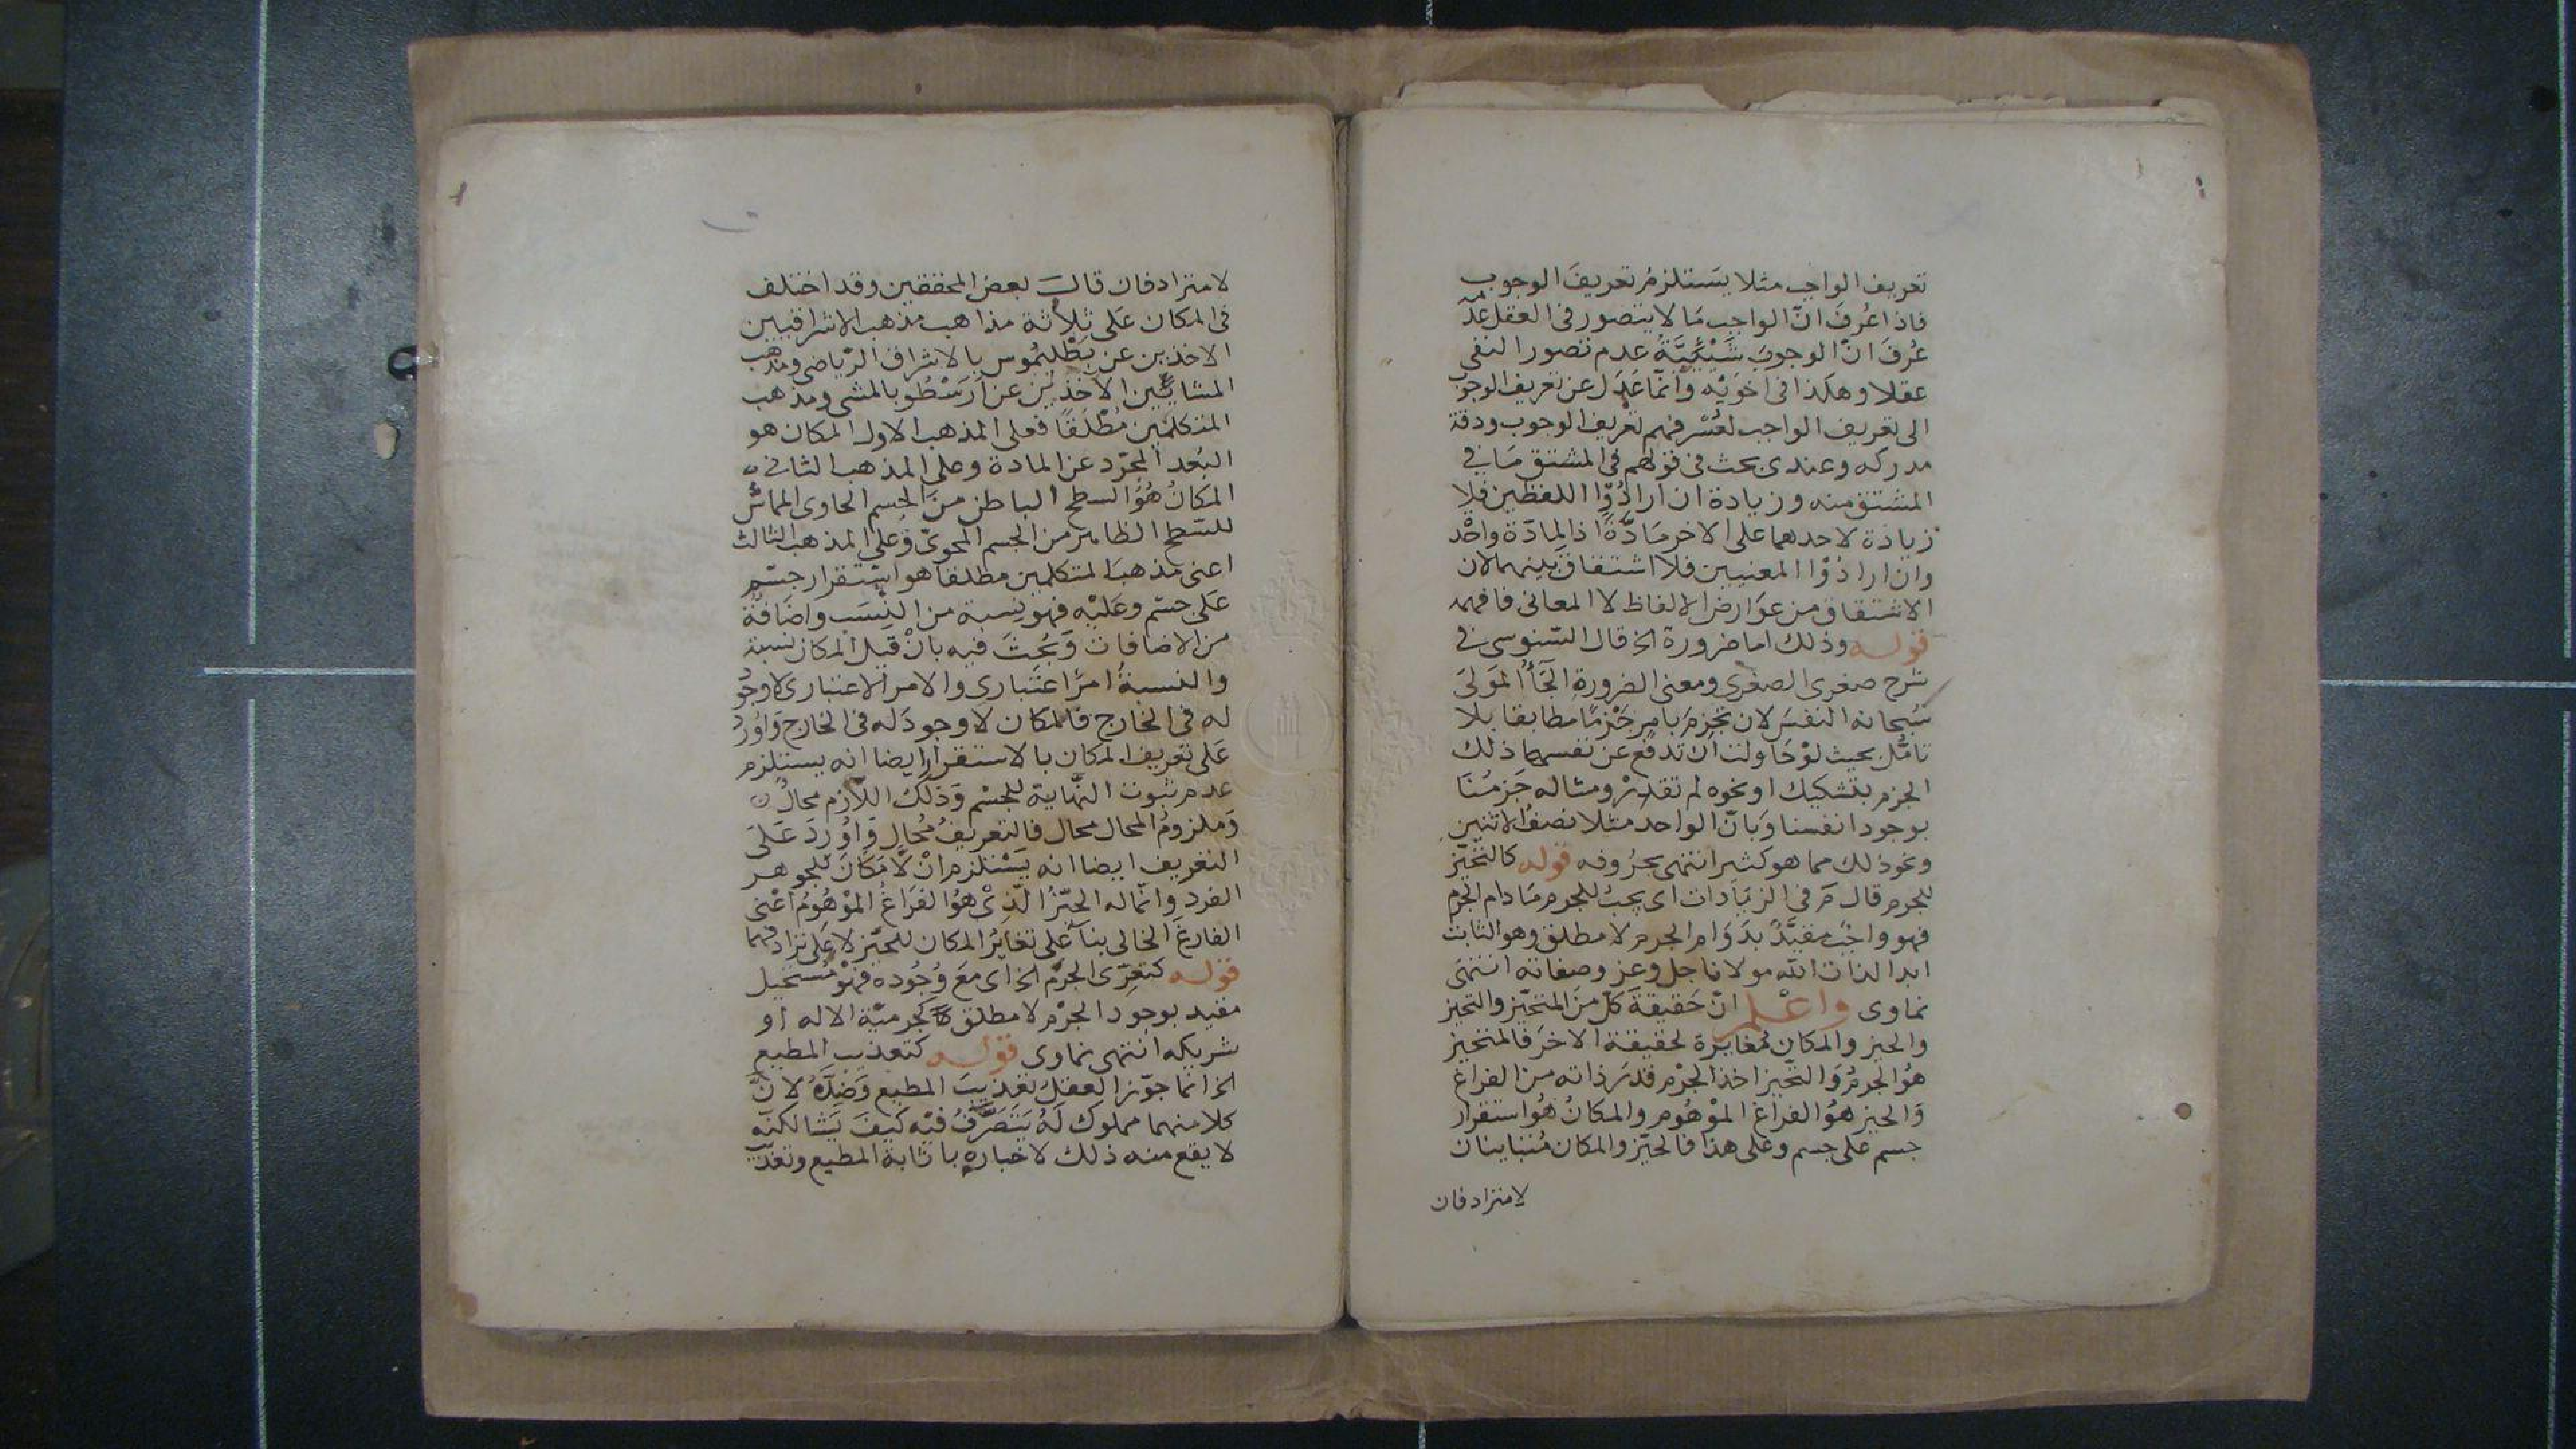 تعريف الواجب مثلا يستلزم تعريف الوجوب
فاذا عُرفَ انّ الواجب مَا لا يتصور فى العقل عدمه
عُرفَ انّ الوجوبَ عدم تصور النفى
عقلا وهكذا فى اخوَيْه وانّما عَدَل عن تعريف الوجوب
الى تعريف الواجب لعُسْر فهم تعريف الوجوب ودقة
مدركه وعندى بحث فى قولهم فى المشتق مَا فى
المشتق منه وزيادة ان ارادُوا اللفظين فلا
زيادة لاحدهما على الاخر مَادَّةً اذ المادّة واحد
وان ارادُوْا المعنيين فلا اشتقاق بينهما لان
الاشتقاق من عوَارض الالفاظ لا المعانى فافهمه
قوله وذلك اما ضرورة الخ قال السّنوسى فى
شرح صغرى الصغرى ومعنى الضرورة الجَأُ المَولىَ
سُبحانه النفسَ لان تجزمَ بامرٍ جَزْمًا مطابقا بلا
تامُّل بحيث لوْ حَاولت اَن تدفع عن نفسها ذلك
الجزم بتشكيك او نحوه لم تقدرْ ومثاله جَزمُنَا
بوجود انفسنا وَبانّ الواحد مثلا نصفُ الاثنين
ونحو ذلك مما هو كثير انتهى بحرُوفه قوله كالتحيّز
للجرم قال مَ فى الزيَادات اى يجبُ للجرم مَا دام الجرم
فهو واجبٌ مقيَّدٌ بدَوَام الجرم لا مطلق وهو الثابت
ابدا لذات الله مولانا جل وعز وصفاته انتهىَ
نماوى واعْلم انّ حَقيقةَ كلّ منَ المتحيّز والتحيز
والحيز والمكان مُغايرة لحقيقة الاخرَ فالمتحيز
هُو الجرمُ وَالتحّيز اخذ الجرْم قدرَ ذاته من الفراغ
وَالحيز هُو الفراغ الموْهُوم والمكانُ هُو استقرار
جسم على جسم وعلى هذا فالحيّز والمكان مُتباينان
لا مترادفان
لا مترادفان قالَ بعض المحققين وقد اختلف
فى المكان عَلى ثلاثة مذاهب مذهب الاشراقيين
الاخذين عن بَطْلَيمُوس بالاشراق الرّياضى ومذهب
المشايّين الآخذين عن اَرَسْطُو بالمشى ومذهب
المتكلمين مُطْلَقًا فعلى المذهب الاول المكان هو
البُعد المجرّد عن المادة وعلى المذهب الثانى
المكانُ هُو السطح الباطن منَ الجسم الحاوى المماسّ
للسّطح الظاهر من الجسم المحوىّ وَعلى المذهب الثالث
اعنى مذهبَ المتكلمين مطلقا هو استقرار جسْم
عَلى جسْم وعَليْه فهو نسبة من النِسَب وَاضَافَة
من الاضافات وَبُحِثَ فيه بانْ قيل المكان نسبة
والنسبةُ امرٌ اعتبارى والامر الاعتبارى لا وجُود
له فى الخارج فالمكان لا وجودَ له فى الخارج وَاوُرد
عَلى تعريف المكان بالاستقرار ايضا انه يستلزم
عدم ثبوت النّهاية للجسْم وَذلك اللاّزم محالٌ
وَملزومُ المحال محال فالتعريفُ مُحال وَاوُردَ عَلىَ
التعريف ايضا انه يَسْتلزم انْ لا مَكَانَ للجوهر
الفرد وانّما له الحيّزُ الّذىْ هُو الفَرَاغُ الموْهُومُ اعْنى
الفارغَ الخالى بناءً على تغايُرُ المكان للحيّز لا عَلى ترادفهما
قوله كتعرّى الجرْم الخ اى معَ وُجُوده فهْو مُستحيل
مقيد بوجود الجرْم لا مطلق كَجرميّة الاله او
شريكه انتهى نماوى قوله كتعذيب المطيع
الخ انّما جوّز العقل تعذيبَ المطيع وَضِدَّهُ لانَّ
كلا منهما مملوك لهُ يَتَصَرَّفُ فيْه كيفَ يَشا لكنّه
لا يقع منه ذلك لاخباره باثابة المطيع وتعذيب